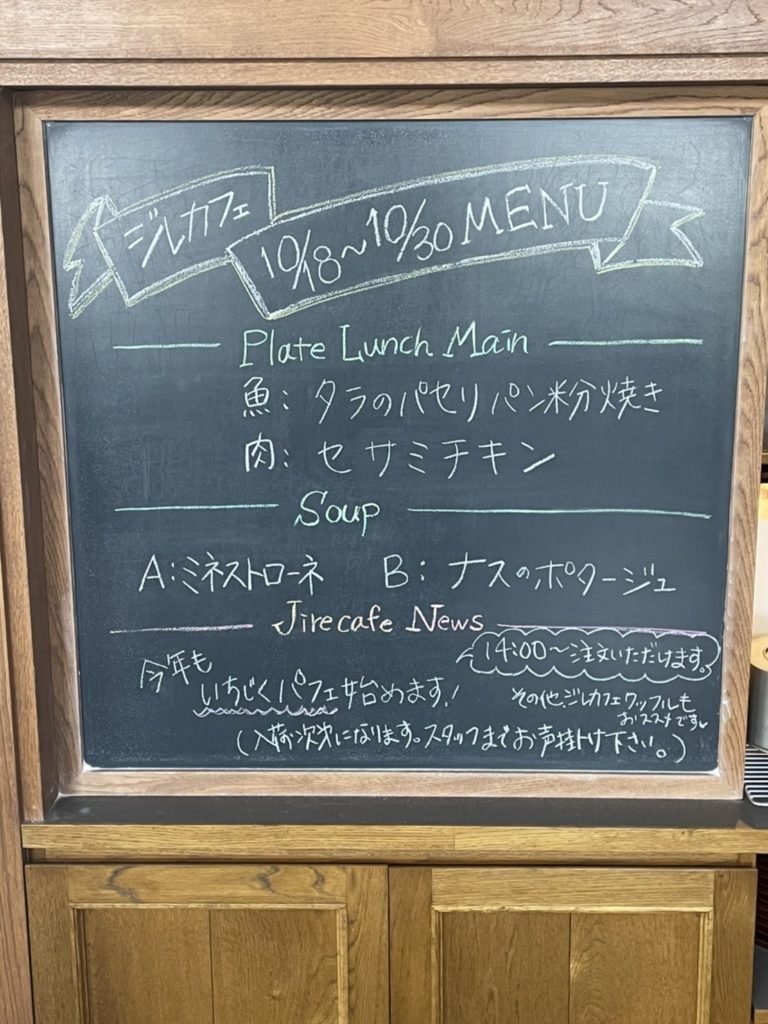 ジルカフェ
10/18～10/30 MENU
Plate Lunch Main
魚：タラのパセリパン粉焼き
肉：セサミチキン
Soup
A：ミネストローネ B：ナスのポタージュ
Jirecafe News
14:00～注文いただけます。
今年も
いちじくパフェ始めます！
その他ジルカフェワッフルも
おススメです♥
（入荷次第になります。スタッフまでお声掛け下さい。）